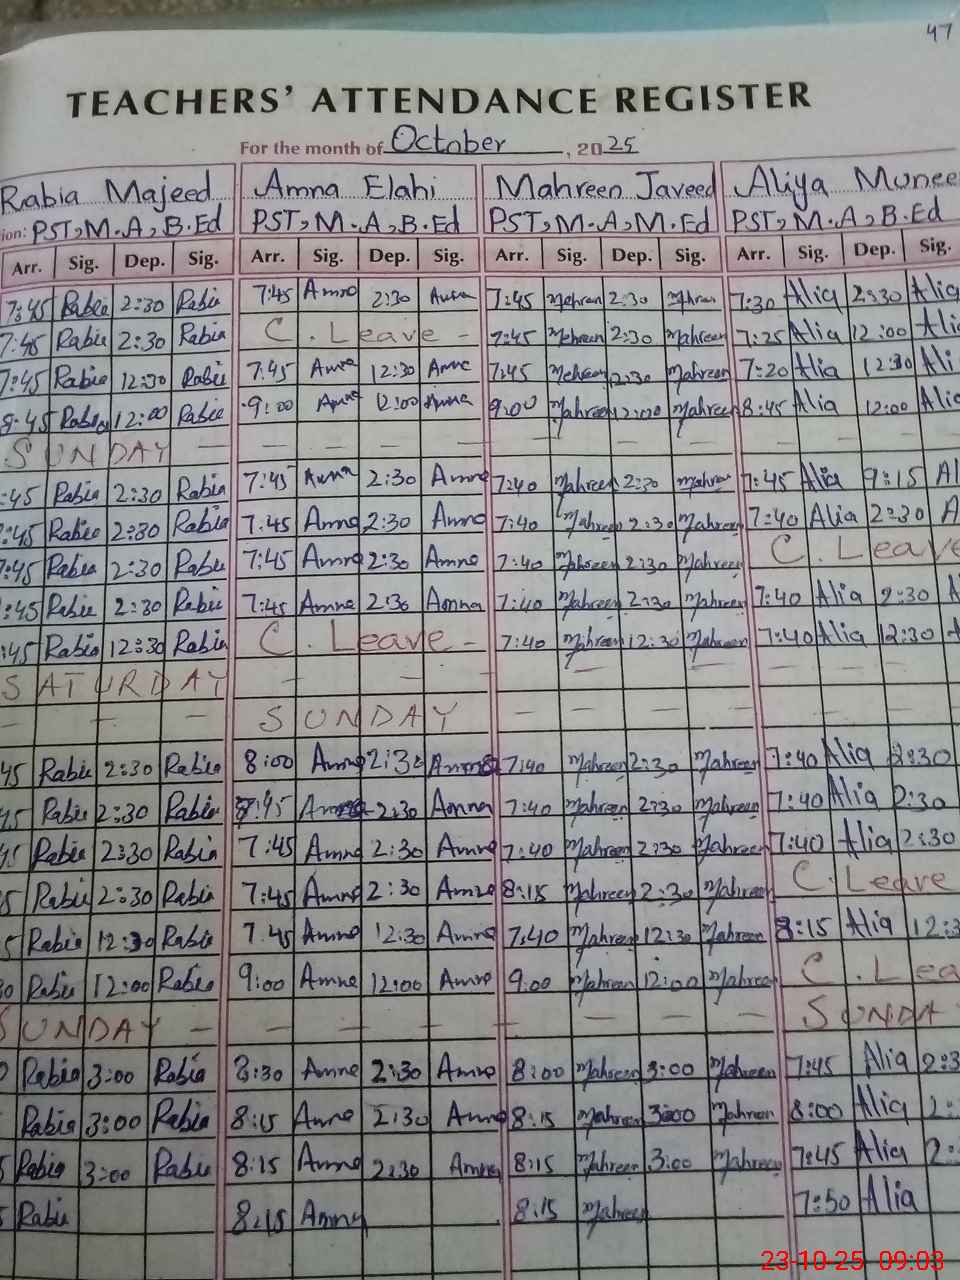 47
TEACHERS' ATTENDANCE REGISTER
For the month of October, 2025
Rabia Majeed Amna Elahi Mahreen Javeed Aliya Munee
ion: PST, M.A, B.Ed PST, M.A, B.Ed PST, M.A, M.Ed PST, M.A, B.Ed
Arr. Sig. Dep. Sig. Arr. Sig. Dep. Sig. Arr. Sig. Dep. Sig. Arr. Sig. Dep. Sig.
7:45 Rabia 2:30 Rabia 7:45 Amna 2:30 Amna 7:45 Mahreen 2:30 Mahreen 7:30 Alia 2:30 Alia
7:45 Rabia 2:30 Rabia C. Leave - 7:45 Mahreen 2:30 Mahreen 7:25 Alia 12:00 Ali
7:45 Rabia 12:30 Rabia 7:45 Amna 12:30 Amna 7:45 Mahreen 12:30 Mahreen 7:20 Alia 12:30 Ali
8:45 Rabia 12:00 Rabia 9:00 Amna 12:00 Amna 9:00 Mahreen 12:00 Mahreen 8:45 Alia 12:00 Alia
SUNDAY - - - - - - - - - - - - -
:45 Rabia 2:30 Rabia 7:45 Amna 2:30 Amna 7:40 Mahreen 2:30 Mahreen 7:45 Alia 9:15 Al
:45 Rabia 2:30 Rabia 7:45 Amna 2:30 Amna 7:40 Mahreen 2:30 Mahreen 7:40 Alia 2:30 A
7:45 Rabia 2:30 Rabia 7:45 Amna 2:30 Amna 7:40 Mahreen 2:30 Mahreen C. Leave
:45 Rabia 2:30 Rabia 7:45 Amna 2:30 Amna 7:40 Mahreen 2:30 Mahreen 7:40 Alia 2:30 A
:45 Rabia 12:30 Rabia C. Leave - 7:40 Mahreen 12:30 Mahreen 7:40 Alia 12:30 A
SATURDAY - - - - - - - - -
- - - SUNDAY - - - - - - -
45 Rabia 2:30 Rabia 8:00 Amna 2:30 Amna 7:40 Mahreen 2:30 Mahreen 7:40 Alia 2:30
45 Rabia 2:30 Rabia 7:45 Amna 2:30 Amna 7:40 Mahreen 2:30 Mahreen 7:40 Alia 2:30
45 Rabia 2:30 Rabia 7:45 Amna 2:30 Amna 7:40 Mahreen 2:30 Mahreen 7:40 Alia 2:30
5 Rabia 2:30 Rabia 7:45 Amna 2:30 Amna 8:15 Mahreen 2:30 Mahreen C. Leave
5 Rabia 12:30 Rabia 7:45 Amna 12:30 Amna 7:40 Mahreen 12:30 Mahreen 8:15 Alia 12:3
0 Rabia 12:00 Rabia 9:00 Amna 12:00 Amna 9:00 Mahreen 12:00 Mahreen C. Lea
SUNDAY - - - - - - - - - SUNDA
0 Rabia 3:00 Rabia 8:30 Amna 2:30 Amna 8:00 Mahreen 3:00 Mahreen 7:45 Alia 2:3
Rabia 3:00 Rabia 8:15 Amna 2:30 Amna 8:15 Mahreen 3:00 Mahreen 8:00 Alia 2:
5 Rabia 3:00 Rabia 8:15 Amna 2:30 Amna 8:15 Mahreen 3:00 Mahreen 7:45 Alia 2:
5 Rabia 8:15 Amna 8:15 Mahreen 7:50 Alia
23-10-25 09:03